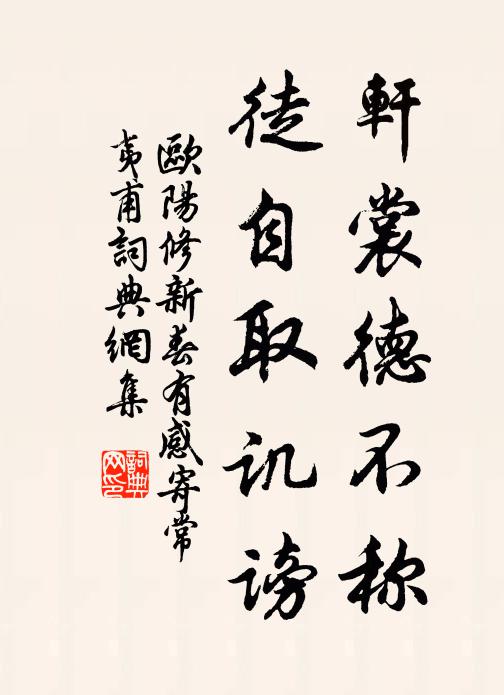 軒裳德不称
徒自取讥謗
歐陽修新春有感寄常
夷甫詞典網集
詞典
网印